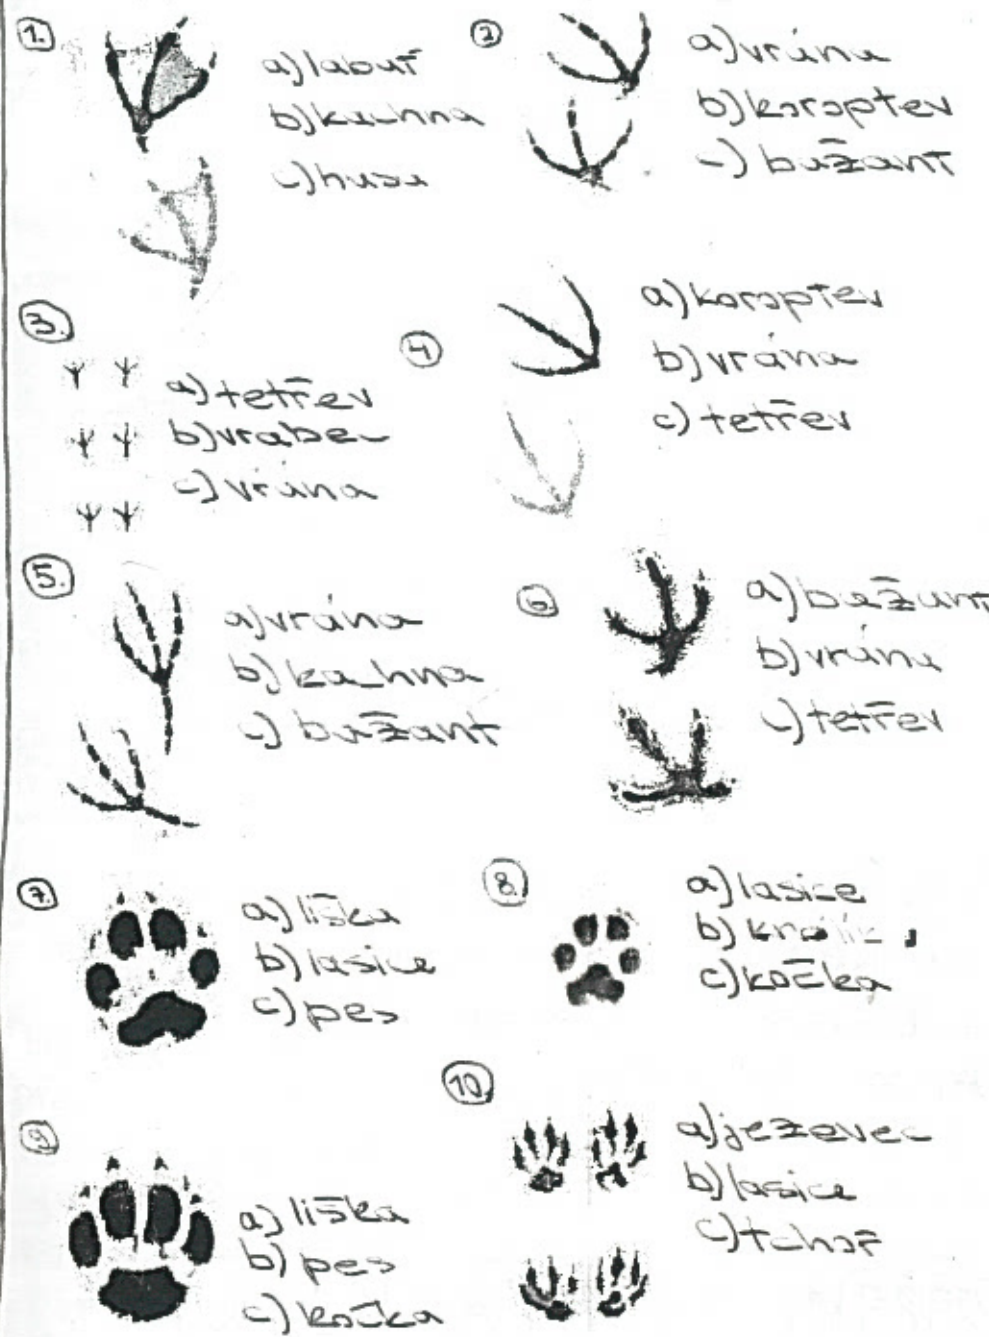 1.
a) labuť
b) kachna
c) husa
2
a) vrána
b) koroptev
c) bažant
3.
a) tetřev
b) vrabec
c) vrána
4
a) koroptev
b) vrána
c) tetřev
5.
a) vrána
b) kachna
c) bažant
6
a) bažant
b) vrána
c) tetřev
7.
a) liška
b) lasice
c) pes
8.
a) lasice
b) králík
c) kočka
9
a) liška
b) pes
c) kočka
10.
a) jezevec
b) lasice
c) tchoř